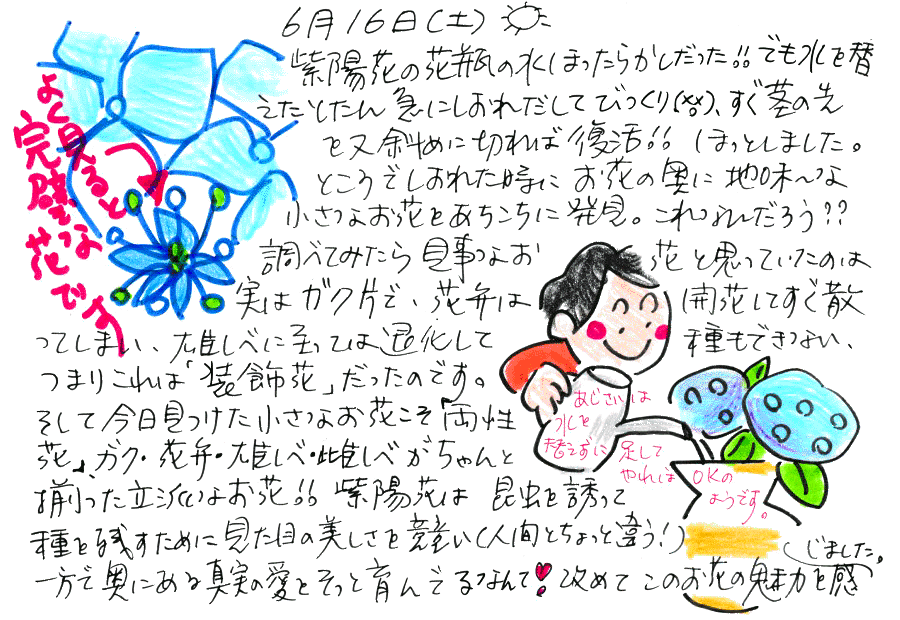 6月16日(土)
紫陽花の花瓶の水ほったらかしだった!!でも水を替
えたとたん急にしおれだしてびっくり(××)、すぐ茎の先
を又斜めに切れば復活!!ほっとしました。
ところでしおれた時にお花の奥に地味〜な
小さなお花をあちこちに発見。これなんだろう??
調べてみたら見事なお花と思っていたのは
実はガク片で、花弁は開花してすぐ散
ってしまい、雄しべに至っては退化して種もできない、
つまりこれは「装飾花」だったのです。
そして今日見つけた小さなお花こそ「両性
花」、ガク・花弁・雄しべ・雌しべがちゃんと
揃った立派なお花!!紫陽花は昆虫を誘って
種を残すために見た目の美しさを競い(人間とちょっと違う!)
一方で奥にある真実の愛をそっと育んでるなんて❣改めてこのお花の魅力を感
じました。
よく見ると
完璧な
花です
あじさいは
水を
替えずに足して
やれば
OKの
ようです。